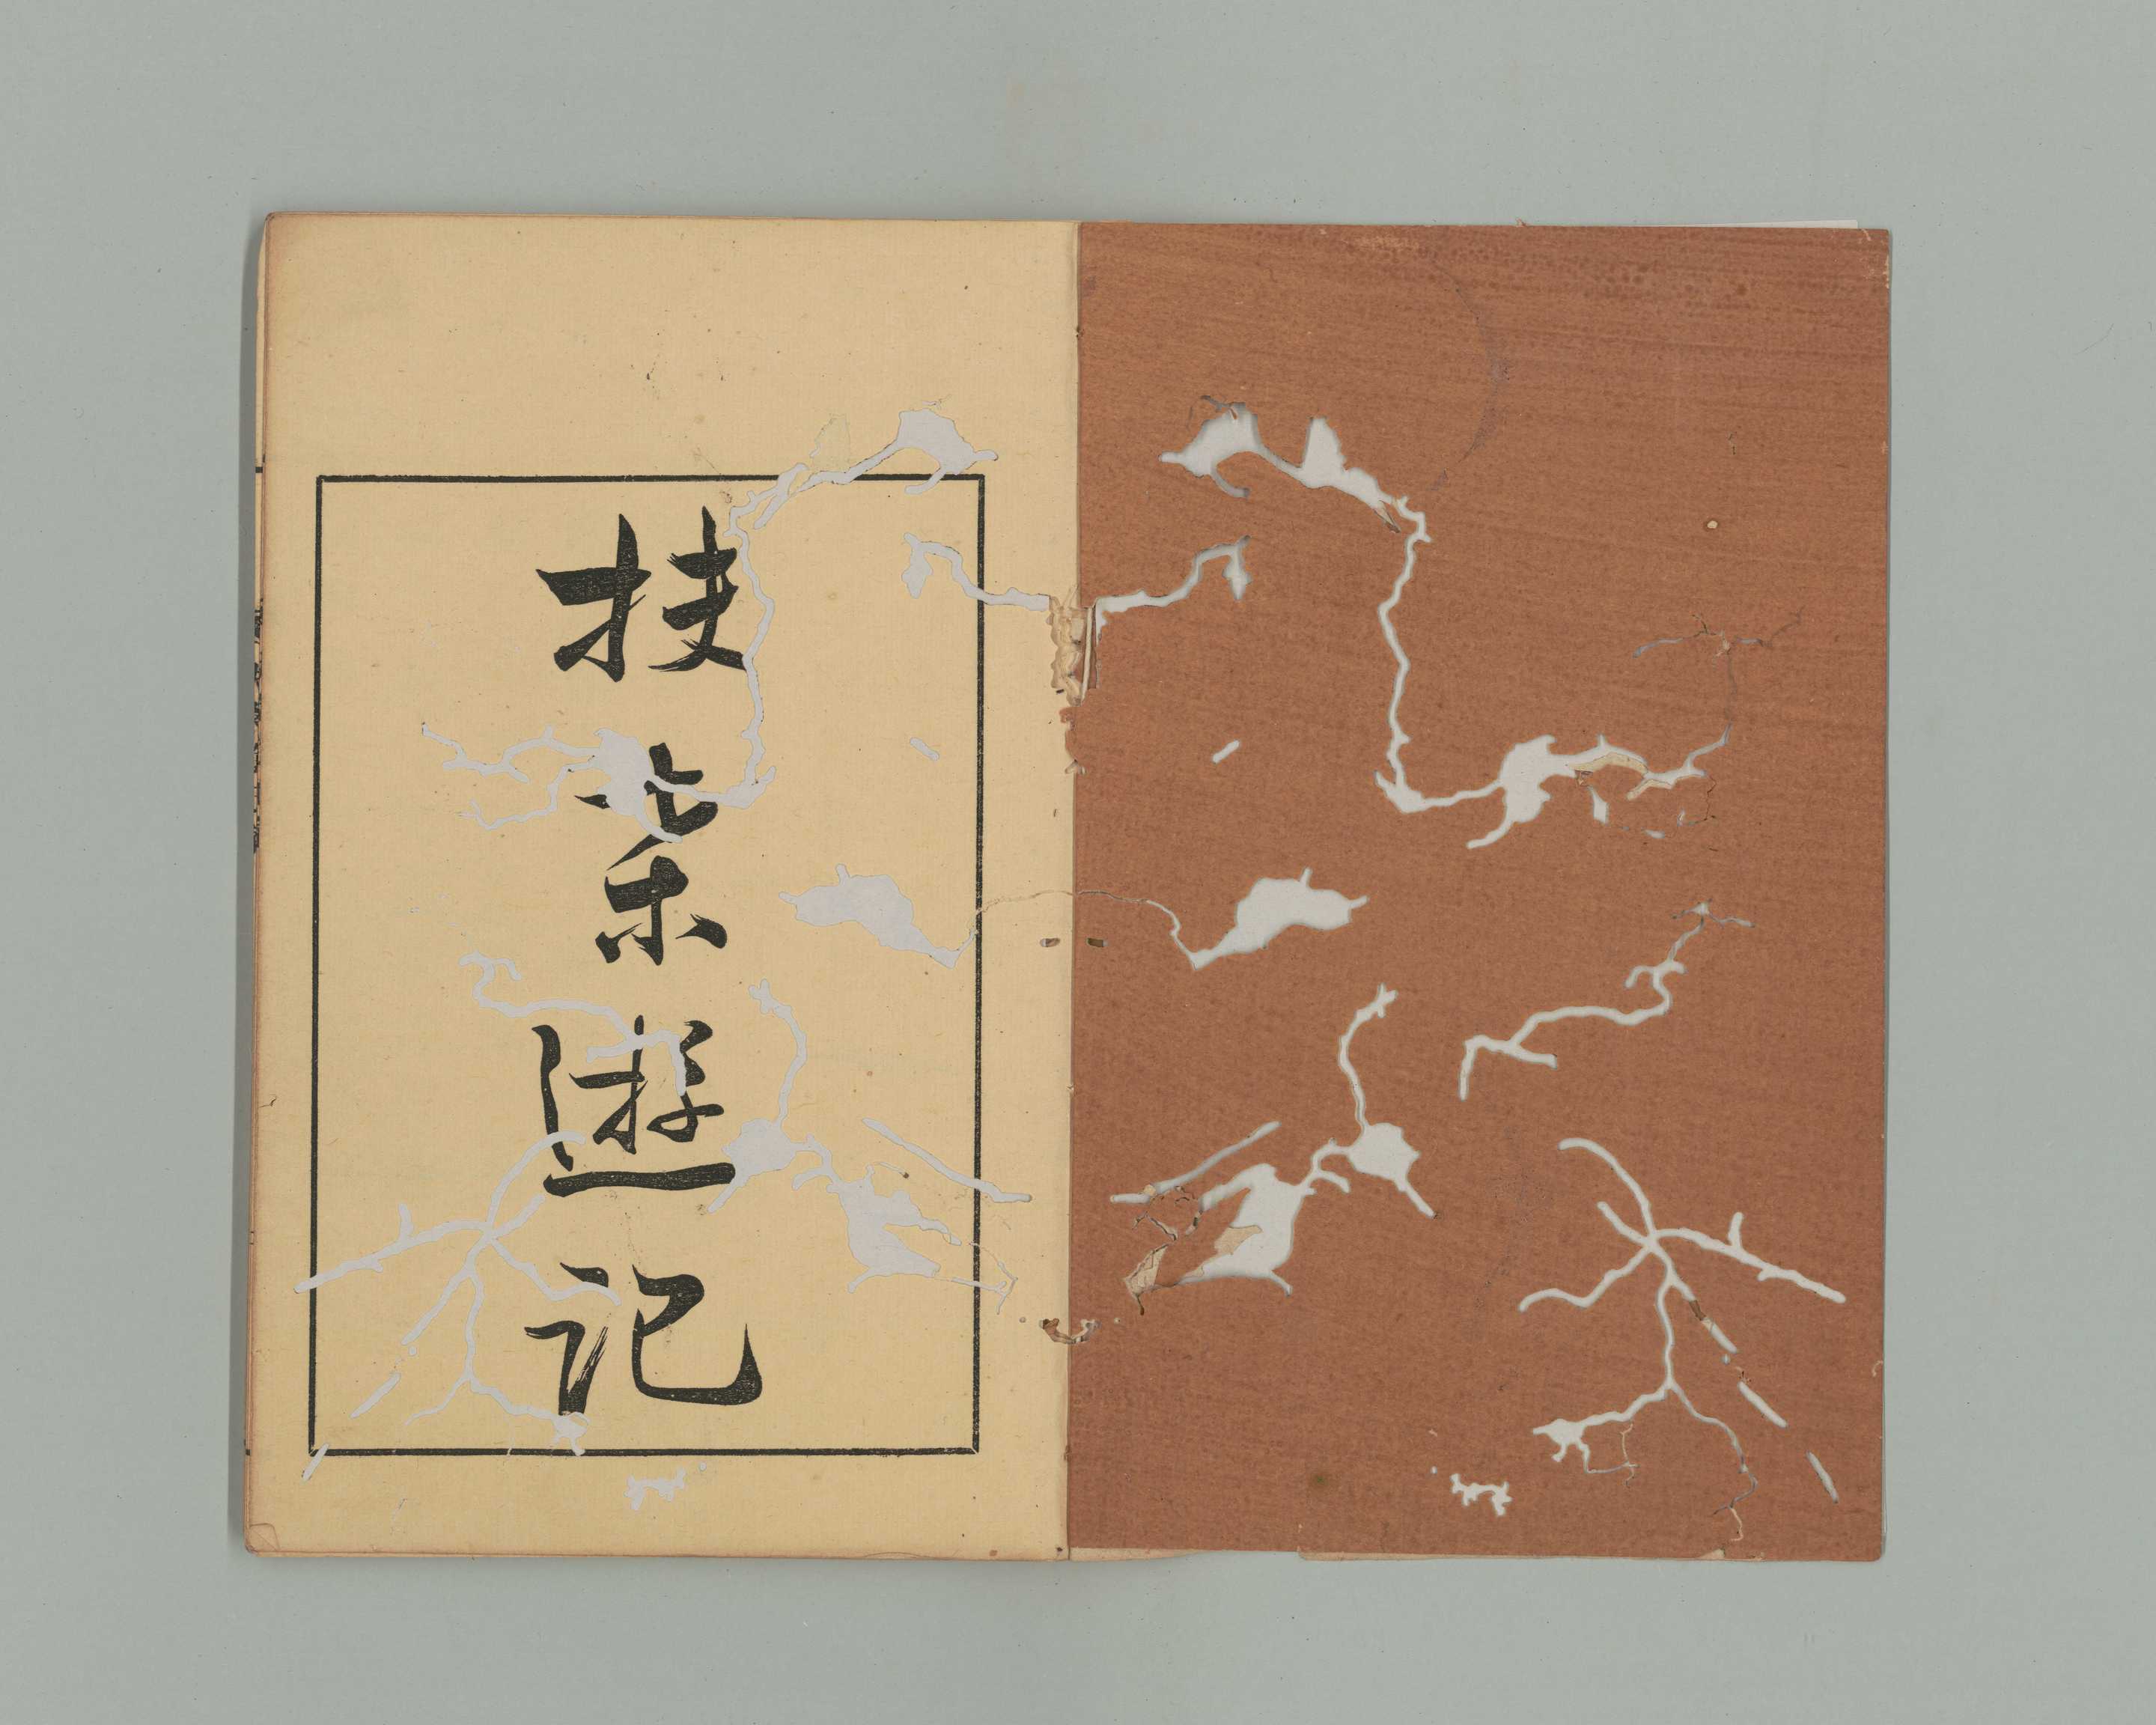 扶桑遊記